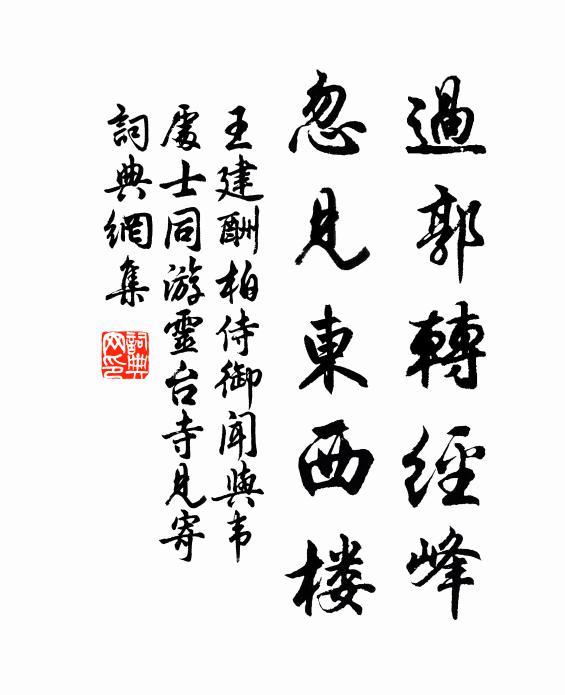 過郭轉經峰
忽見東西楼
王建酬柏侍御聞與韦
處士同游靈台寺見寄
詞典網集
詞典
网印